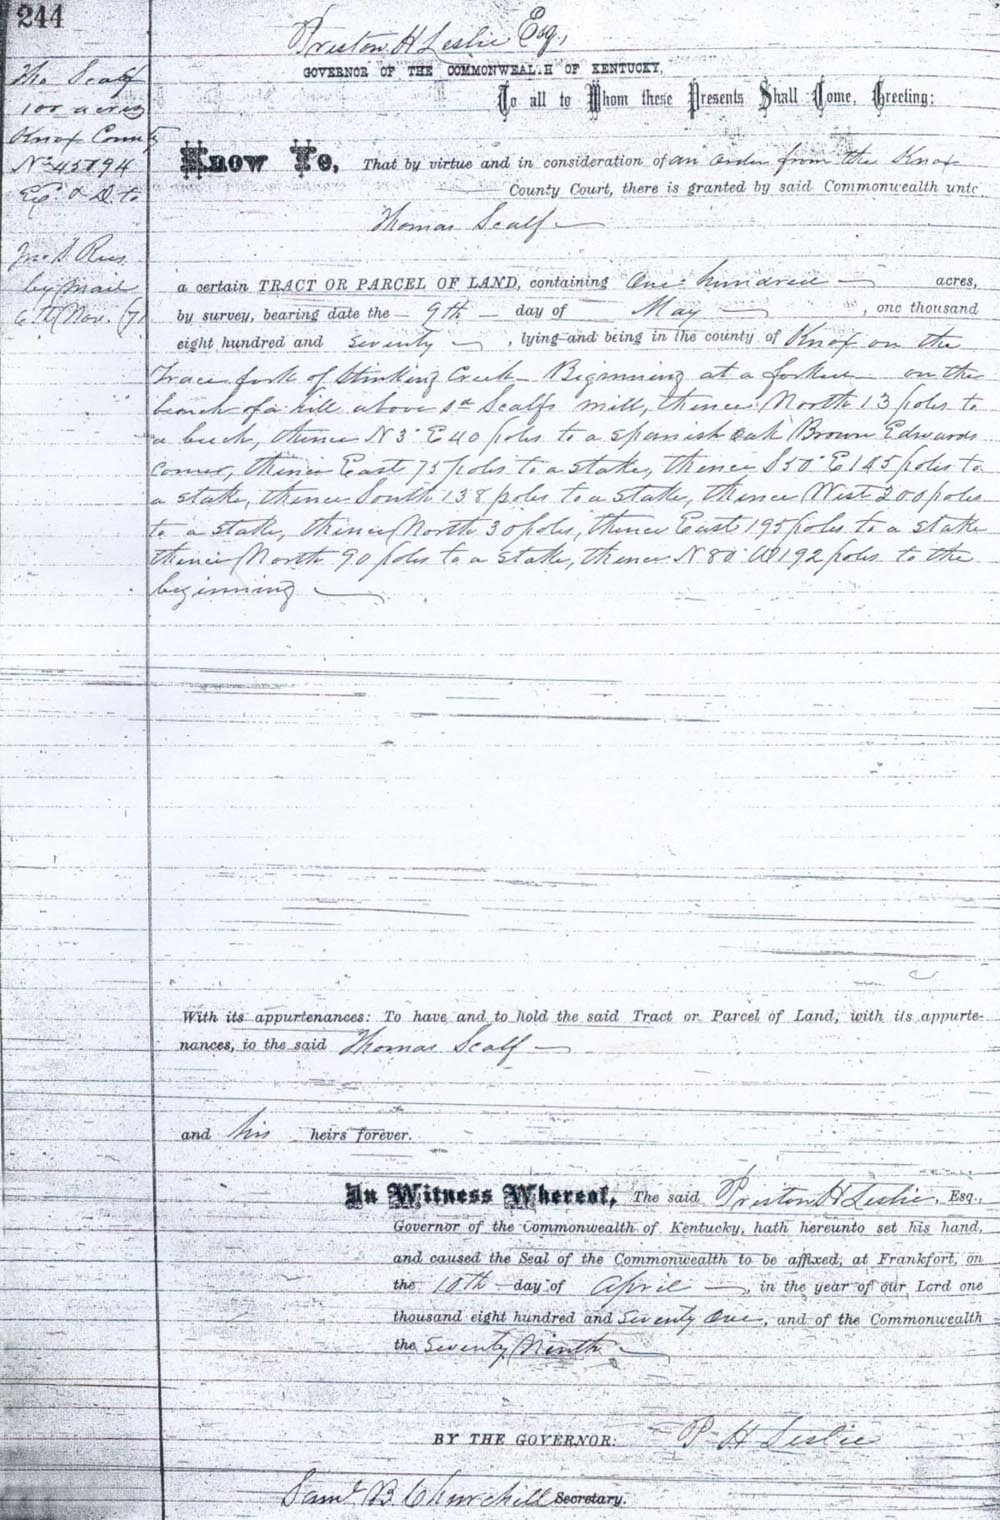 244
Preston H Leslie Esq,
GOVERNOR OF THE COMMONWEALTH OF KENTUCKY,
To all to Whom these Presents Shall Come, Greeting:
Tho Scalf
100 acres
Knox County
No 45794
Ex. & D. to
Jno
by mail
6th Nov. /71
Know Ye, That by virtue and in consideration of an order from the Knox
County Court, there is granted by said Commonwealth unto
Thomas Scalf
a certain TRACT OR PARCEL OF LAND, containing One hundred acres,
by survey, bearing date the 9th day of May, one thousand
eight hundred and seventy, lying and being in the county of Knox on the
Trace fork of Stinking Creek Beginning at a on the
bench of a hill above sd Scalfs mill, thence North 13 poles to
a beech, thence N 3° E 40 poles to a spanish oak Brown Edwards
corner, thence East 75 poles to a stake, thence S 50° E 145 poles to
a stake, thence South 138 poles to a stake, thence West 200 poles
to a stake, thence North 30 poles, thence East 195 poles to a stake
thence North 90 poles to a stake, thence N 80° W 192 poles to the
beginning
With its appurtenances: To have and to hold the said Tract or Parcel of Land, with its appurte-
nances, to the said Thomas Scalf
and his heirs forever.
In Witness Whereof, The said Preston H Leslie, Esq.,
Governor of the Commonwealth of Kentucky, hath hereunto set his hand,
and caused the Seal of the Commonwealth to be affixed, at Frankfort, on
the 10th day of April, in the year of our Lord one
thousand eight hundred and seventy one, and of the Commonwealth
the seventy Ninth
BY THE GOVERNOR: P H Leslie
Saml B Churchill Secretary.